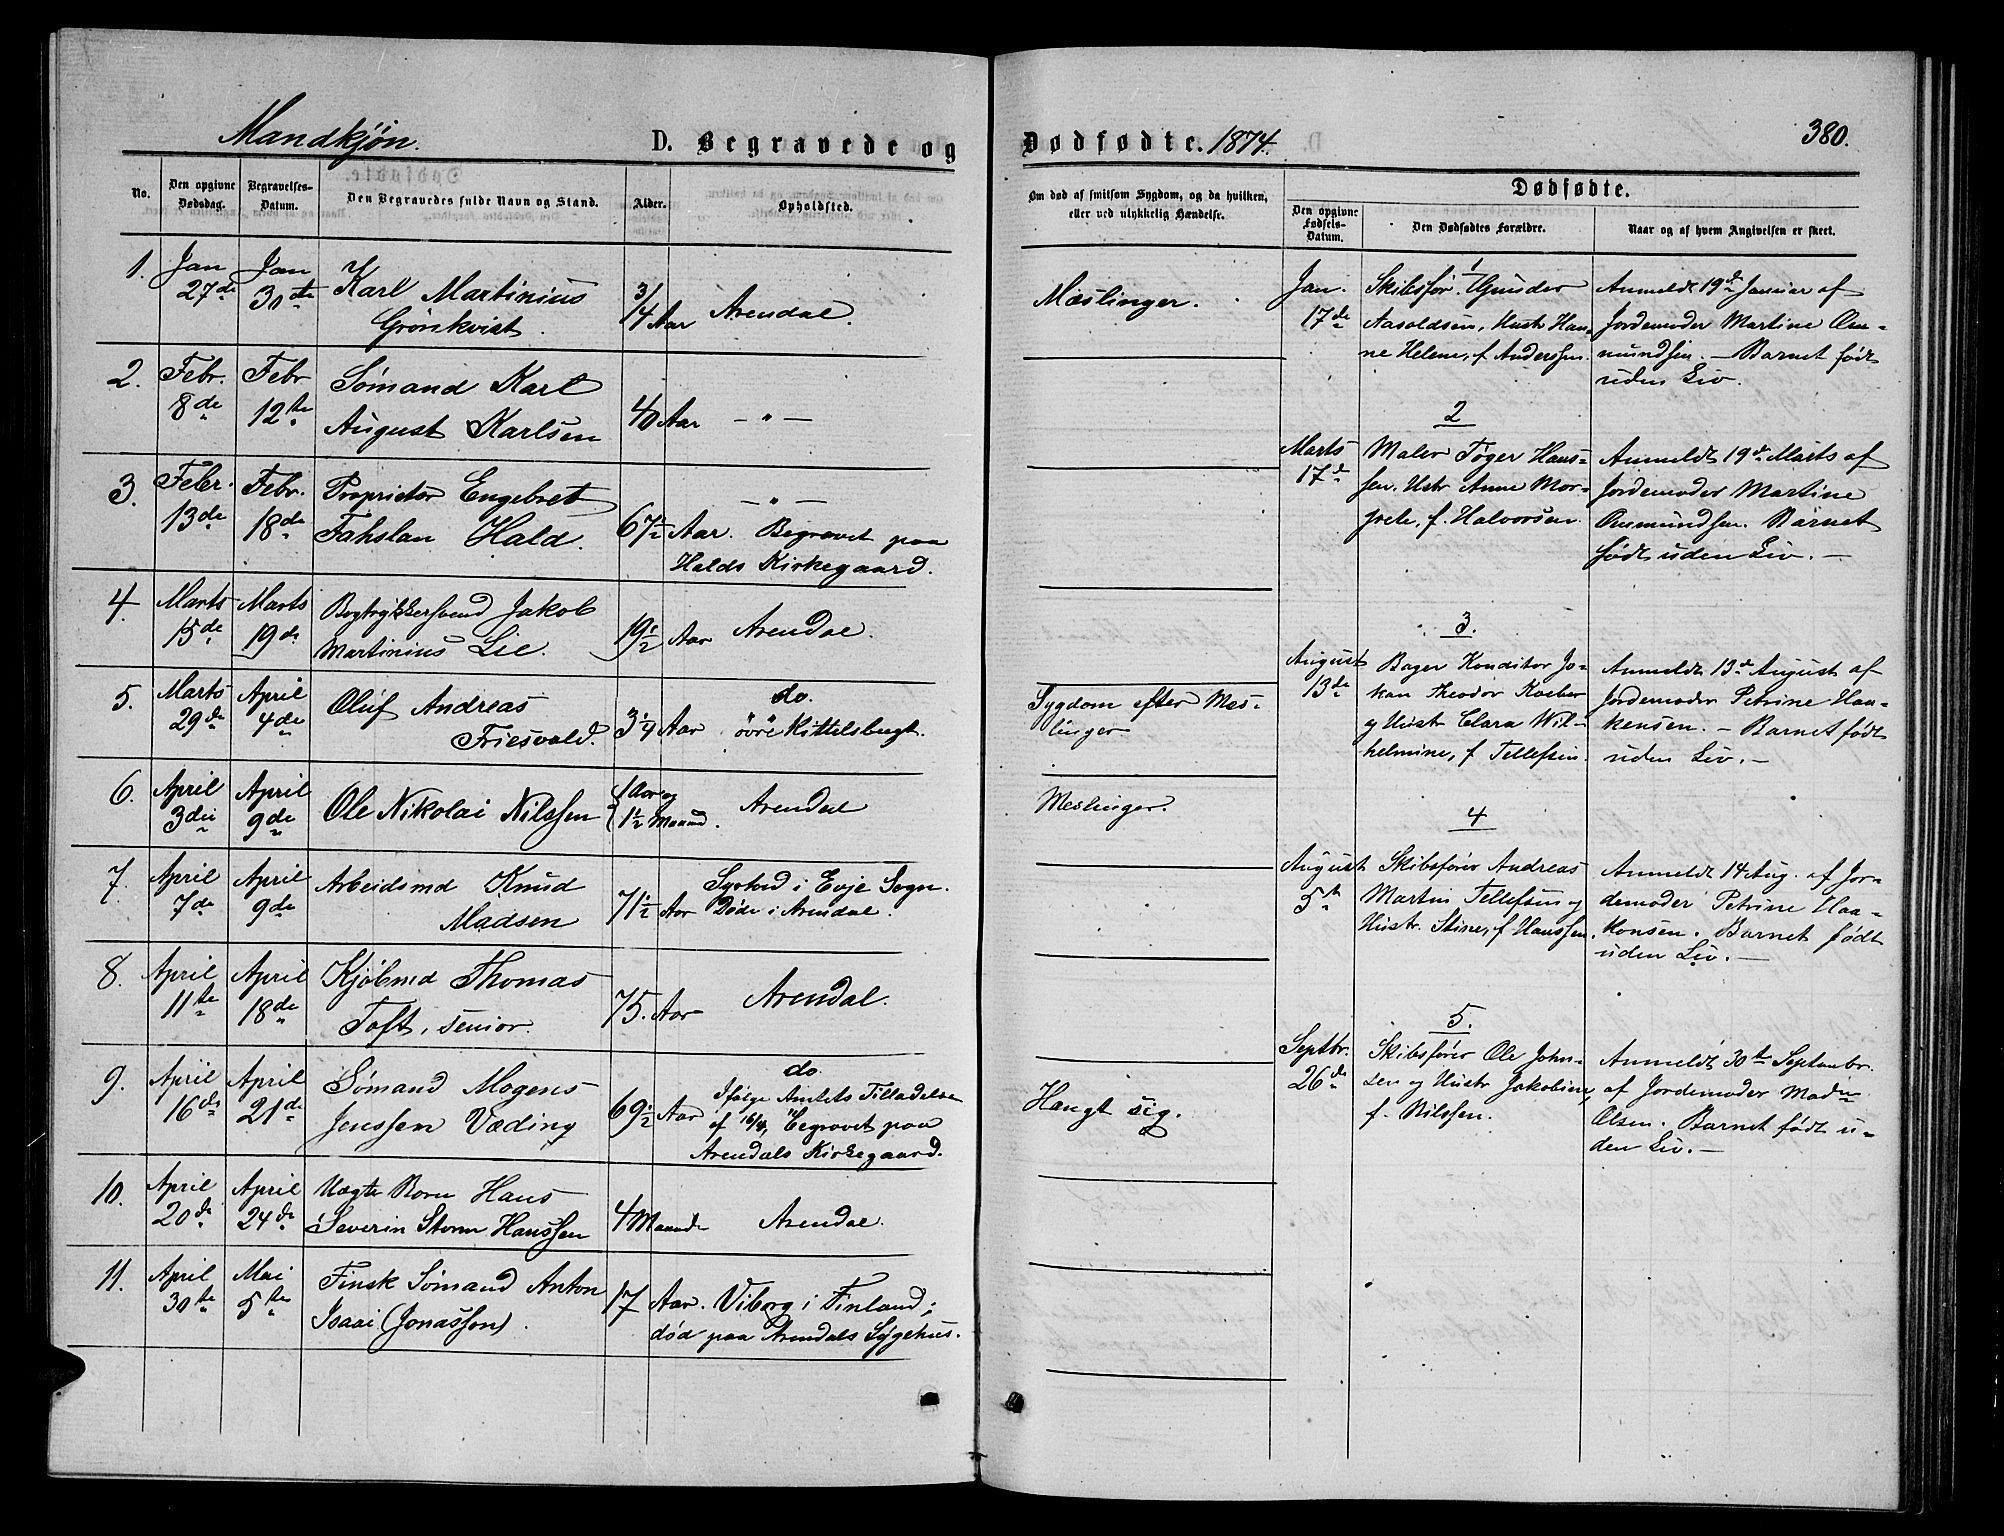 Mandkjøn. D. Begravede og
No. Den opgivne Dødsdag. Begravelses-Datum. Den Begravedes fulde Navn og Stand. Alder. Opholdsted.
1. Jan Jan Karl Martinius 3/14 Aar Arendal.
27de 30te Grönkvist.
2. Febr. Febr Sømand Karl
8de 12te August Karlsen 40 Aar — " —
3. Febr. Febr. Proprietær Engebret — " —
13de 18de Fahslan Hald. 67½ Aar. Begravet paa
Halds Kirkegaard.
4. Marts Marts Bogtrykkersvend Jakob
15de 19de Martinius Lie. 19½ Aar Arendal.
5. Marts April Oluf Andreas do.
29de 4de Friesvold. 3¼ Aar øvre Kittelsbugt.
6. April April Ole Nikolai Nilssen 1 Aar og Arendal
3die 9de 1½ Maaned.
7. April April Arbeidsmd Knud Evje Sogn.
7de 9de Madsen 71½ Aar Døde i Arendal.
8. April April Kjøbmd Thomas
11te 18de Toft, senior. 75. Aar Arendal.
9. April April Sømand Mogens do.
16de 21de Jenssen Væding 69½ Aar Ifølge Amtets Tilladelse
af 16/4, Begravet paa
Arendals Kirkegaard.
10. April April Uægte Barn Hans
20de 24de Severin Storm Hanssen 4 Maaneder Arendal.
11. April Mai Finsk Sømand Anton
30te 5te Isaai (Jonassen). 17 Aar. Viborg i Finland;
død paa Arendals Sygehus.
Dødfødte. 1874. 380.
Om død af smitsom Sygdom, og da hvilken,
eller ved ulykkelig Hændelse.
Dødfødte.
Den opgivne Fødsels-Datum. Den Dødfødtes Forældre. Naar og af hvem Angivelsen er skeet.
Mæslinger.
Sygdom efter Mes-
linger
Meslinger.
Hængt sig.
1
Jan. Skibsfør. Gunder Anmeldt 19de Januar af
17de Aasoldsen, Hustr Han- Jordemoder Martine Os-
ne Helene, f. Anderssen. mundsen. — Barnet født
uden Liv.
2
Marts Maler Tøger Hans- Anmeldt 19de Marts af
17de sen. Ustr Anne Mar- Jordemoder Martine
grete, f. Halvorsen. Osmundsen. Barnet
født uden Liv. —
3.
August Bager Konditor Jo- Anmeldt 13de August af
13de han Theodor Koeber Jordemoder Petrine Haa-
og Hustr Clara Wil- kensen. — Barnet født
helmine, f. Tellefsen. uden Liv. —
4
August Skibsfører Andreas Anmeldt 14 Aug. af Jor-
5te Martin Tellefsen og demoder Petrine Haa-
Hustr. Stine, f Hanssen. konsen. Barnet født
uden Liv. —
5.
Septbr. Skibsfører Ole John- Anmeldt 30te Septembr.
26de sen og Hustr Jakobine, af Jordemoder Madn
f. Nilssen. Olsen. Barnet født u-
den Liv. —